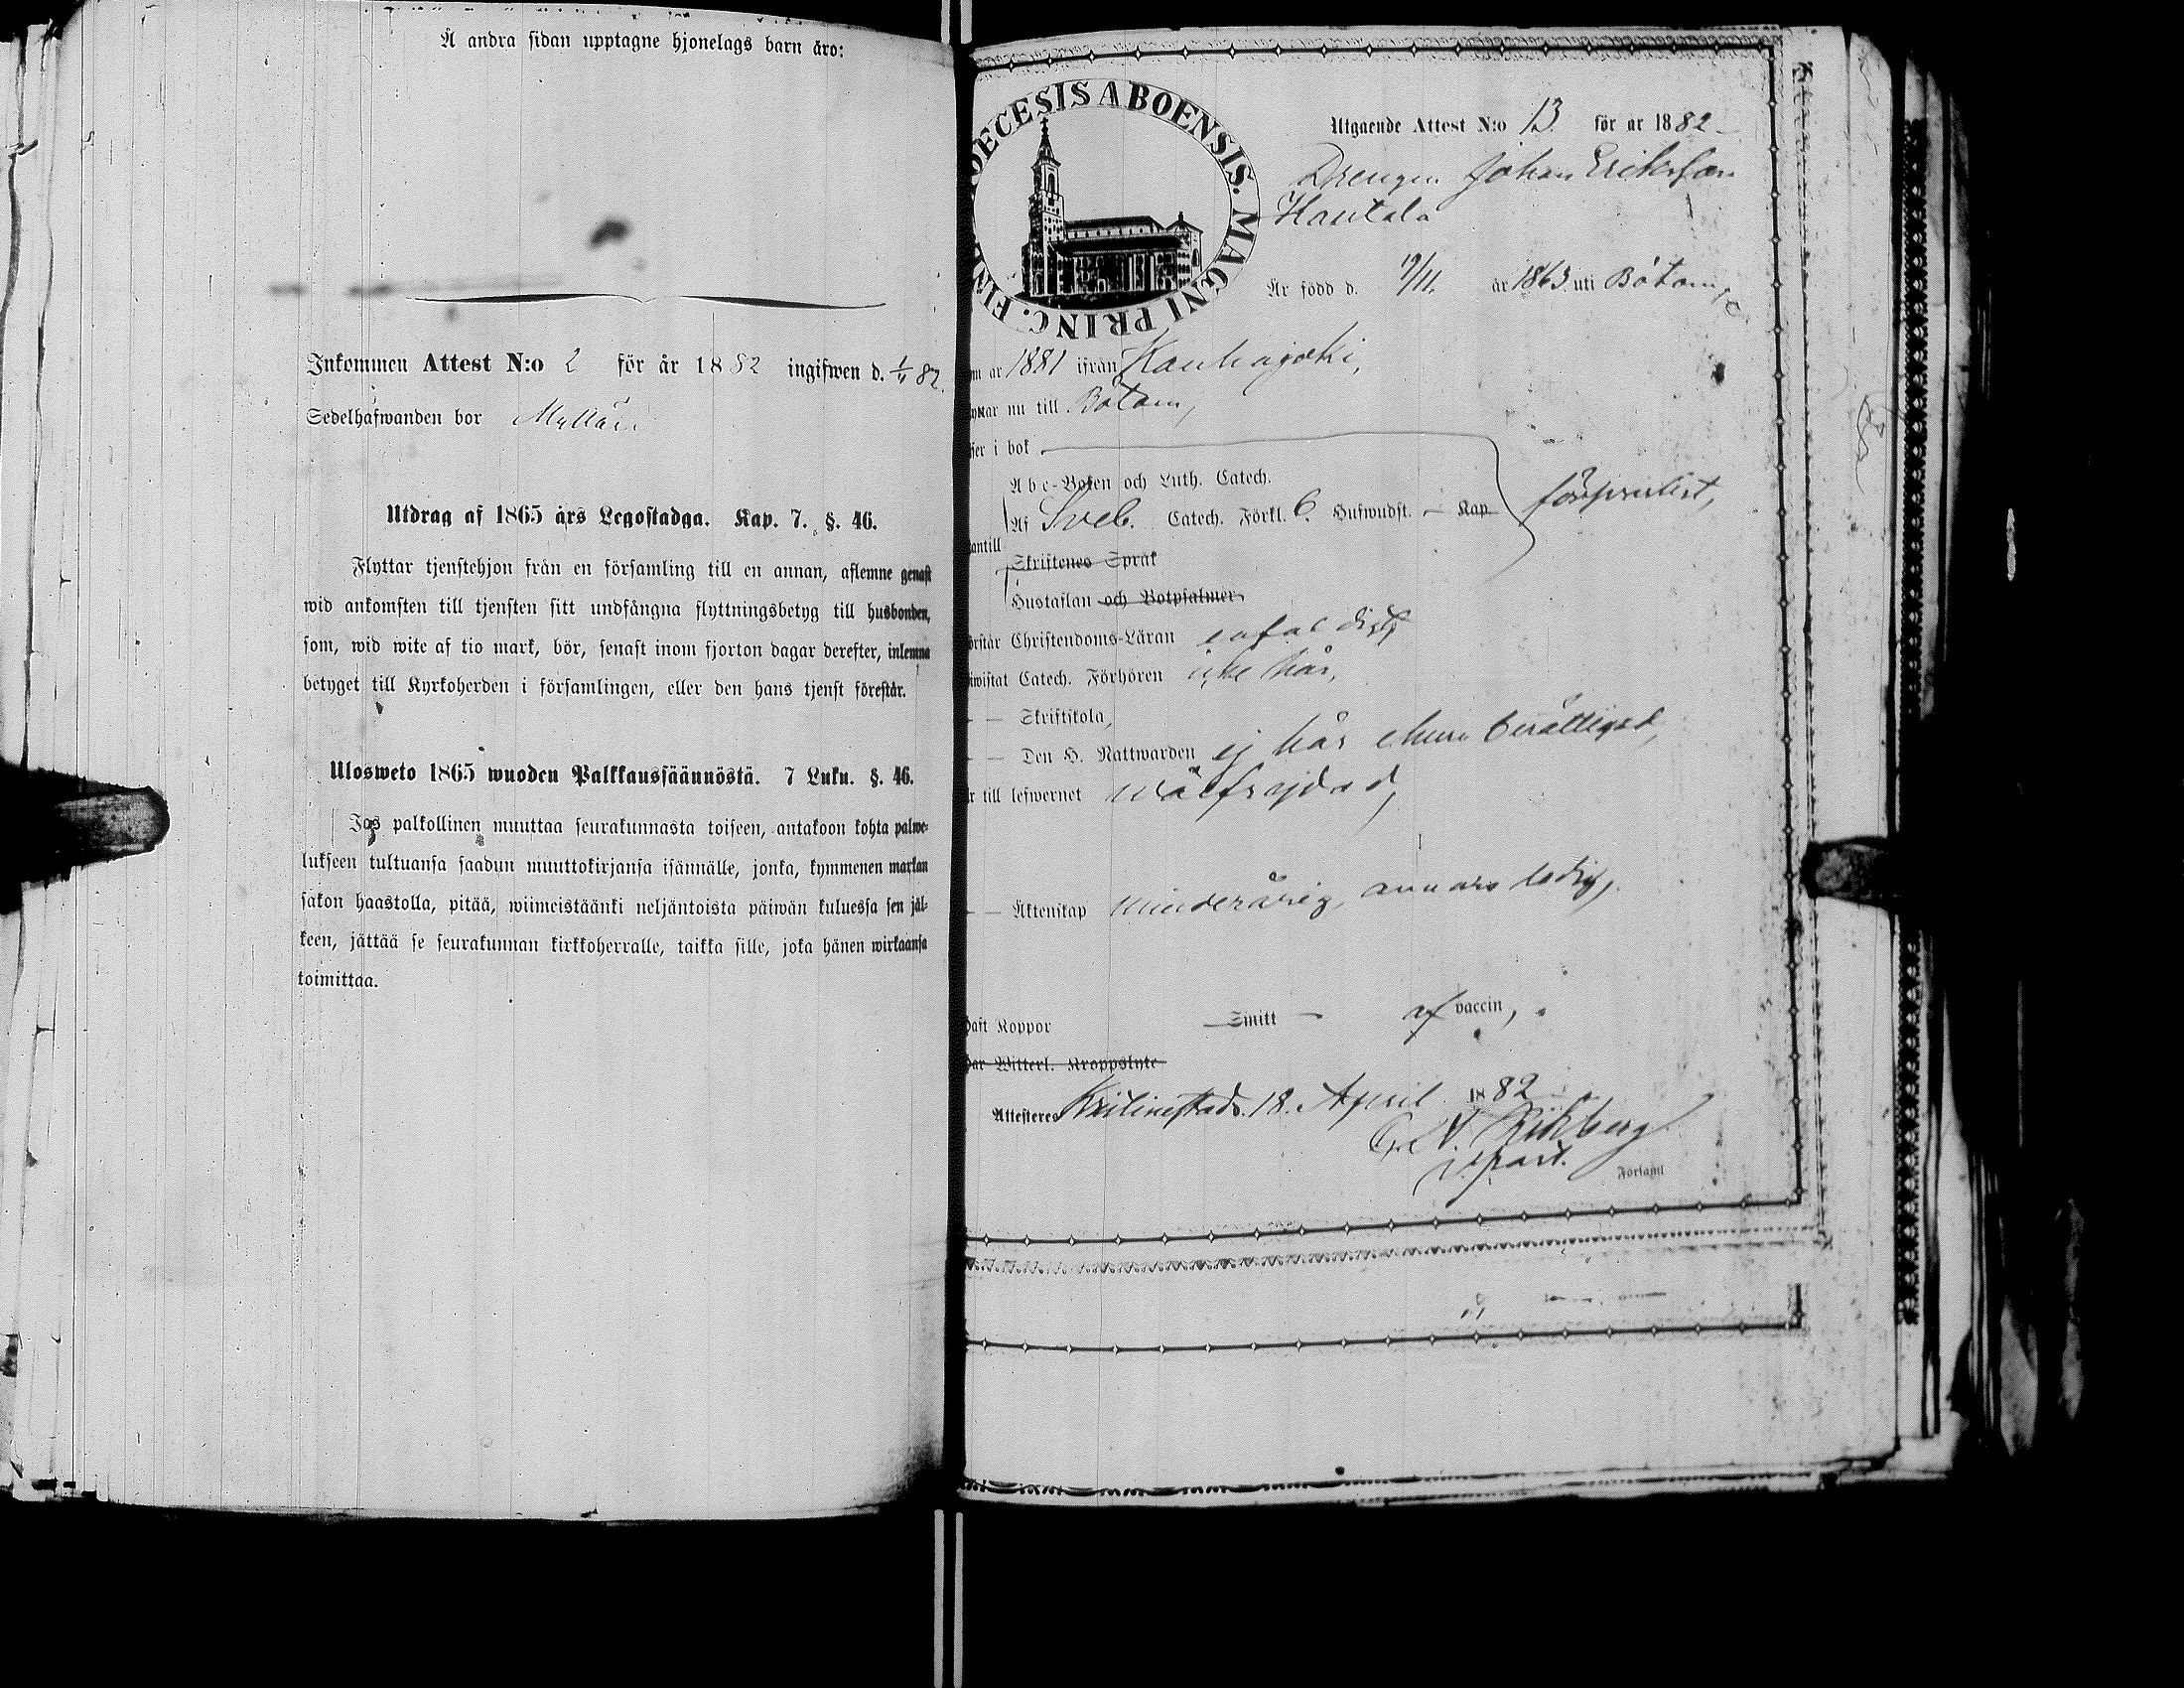 Å andra sidan upptagne hjonelags barn äro:
Inkommen Attest N:o 2 för år 1882 ingifwen d. 82.
Sedelhafwanden bor
Utdrag af 1865 års Legostadga. Kap. 7. §. 46.
Flyttar tjenstehjon från en församling till en annan, aflemne genast
wid ankomsten till tjensten sitt undfångna flyttningsbetyg till husbonden,
som, wid wite af tio mark, bör, senast inom fjorton dagar derefter, inlemna
betyget till Kyrkoherden i församlingen, eller den hans tjenst förestår.
Ulosweto 1865 wuoden Palkkaussäännöstä. 7 Luku. §. 46.
Jos palkollinen muuttaa seurakunnasta toiseen, antakoon kohta palwe-
lukseen tultuansa saadun muuttokirjansa isännälle, jonka, kymmenen markan
sakon haastolla, pitää, wiimeistäänki neljäntoista päiwän kuluessa sen jäl-
keen, jättää se seurakunnan kirkkoherralle, taikka sille, joka hänen wirkaansa
toimittaa.
OECESIS ABOENSIS. MAGNI PRINC. FIN
Utgaende Attest N:o 13. för ar 1882
Drengen Johan Eriksson
Hautala
Är född d. 19/11. år 1863 uti Bötom
m ar 1881 ifrån Kauhajoki,
yttar nu till Bötom,
ser i bok
Abc-Boken och Luth. Catech.
Af Sveb. Catech. Förkl. 6. Hufwudst. – Kap försvarligt,
antill
Skriftenes Språk
Hustaflan och Botpsalmer
örstår Christendoms-Läran enfaldigt,
iwistat Catech. Förhören icke här,
– – Skriftskola,
– – Den H. Nattwarden ej här ehuru berättigad,
r till lefwernet wälfrejdad,
– – Äktenskap minderårig, annars ledig,
haft Koppor Smitt – af vaccin,
har Witterl. Kroppslyte
Attesteres Kristinestad 18. April 1882
v. past.
Forsaml